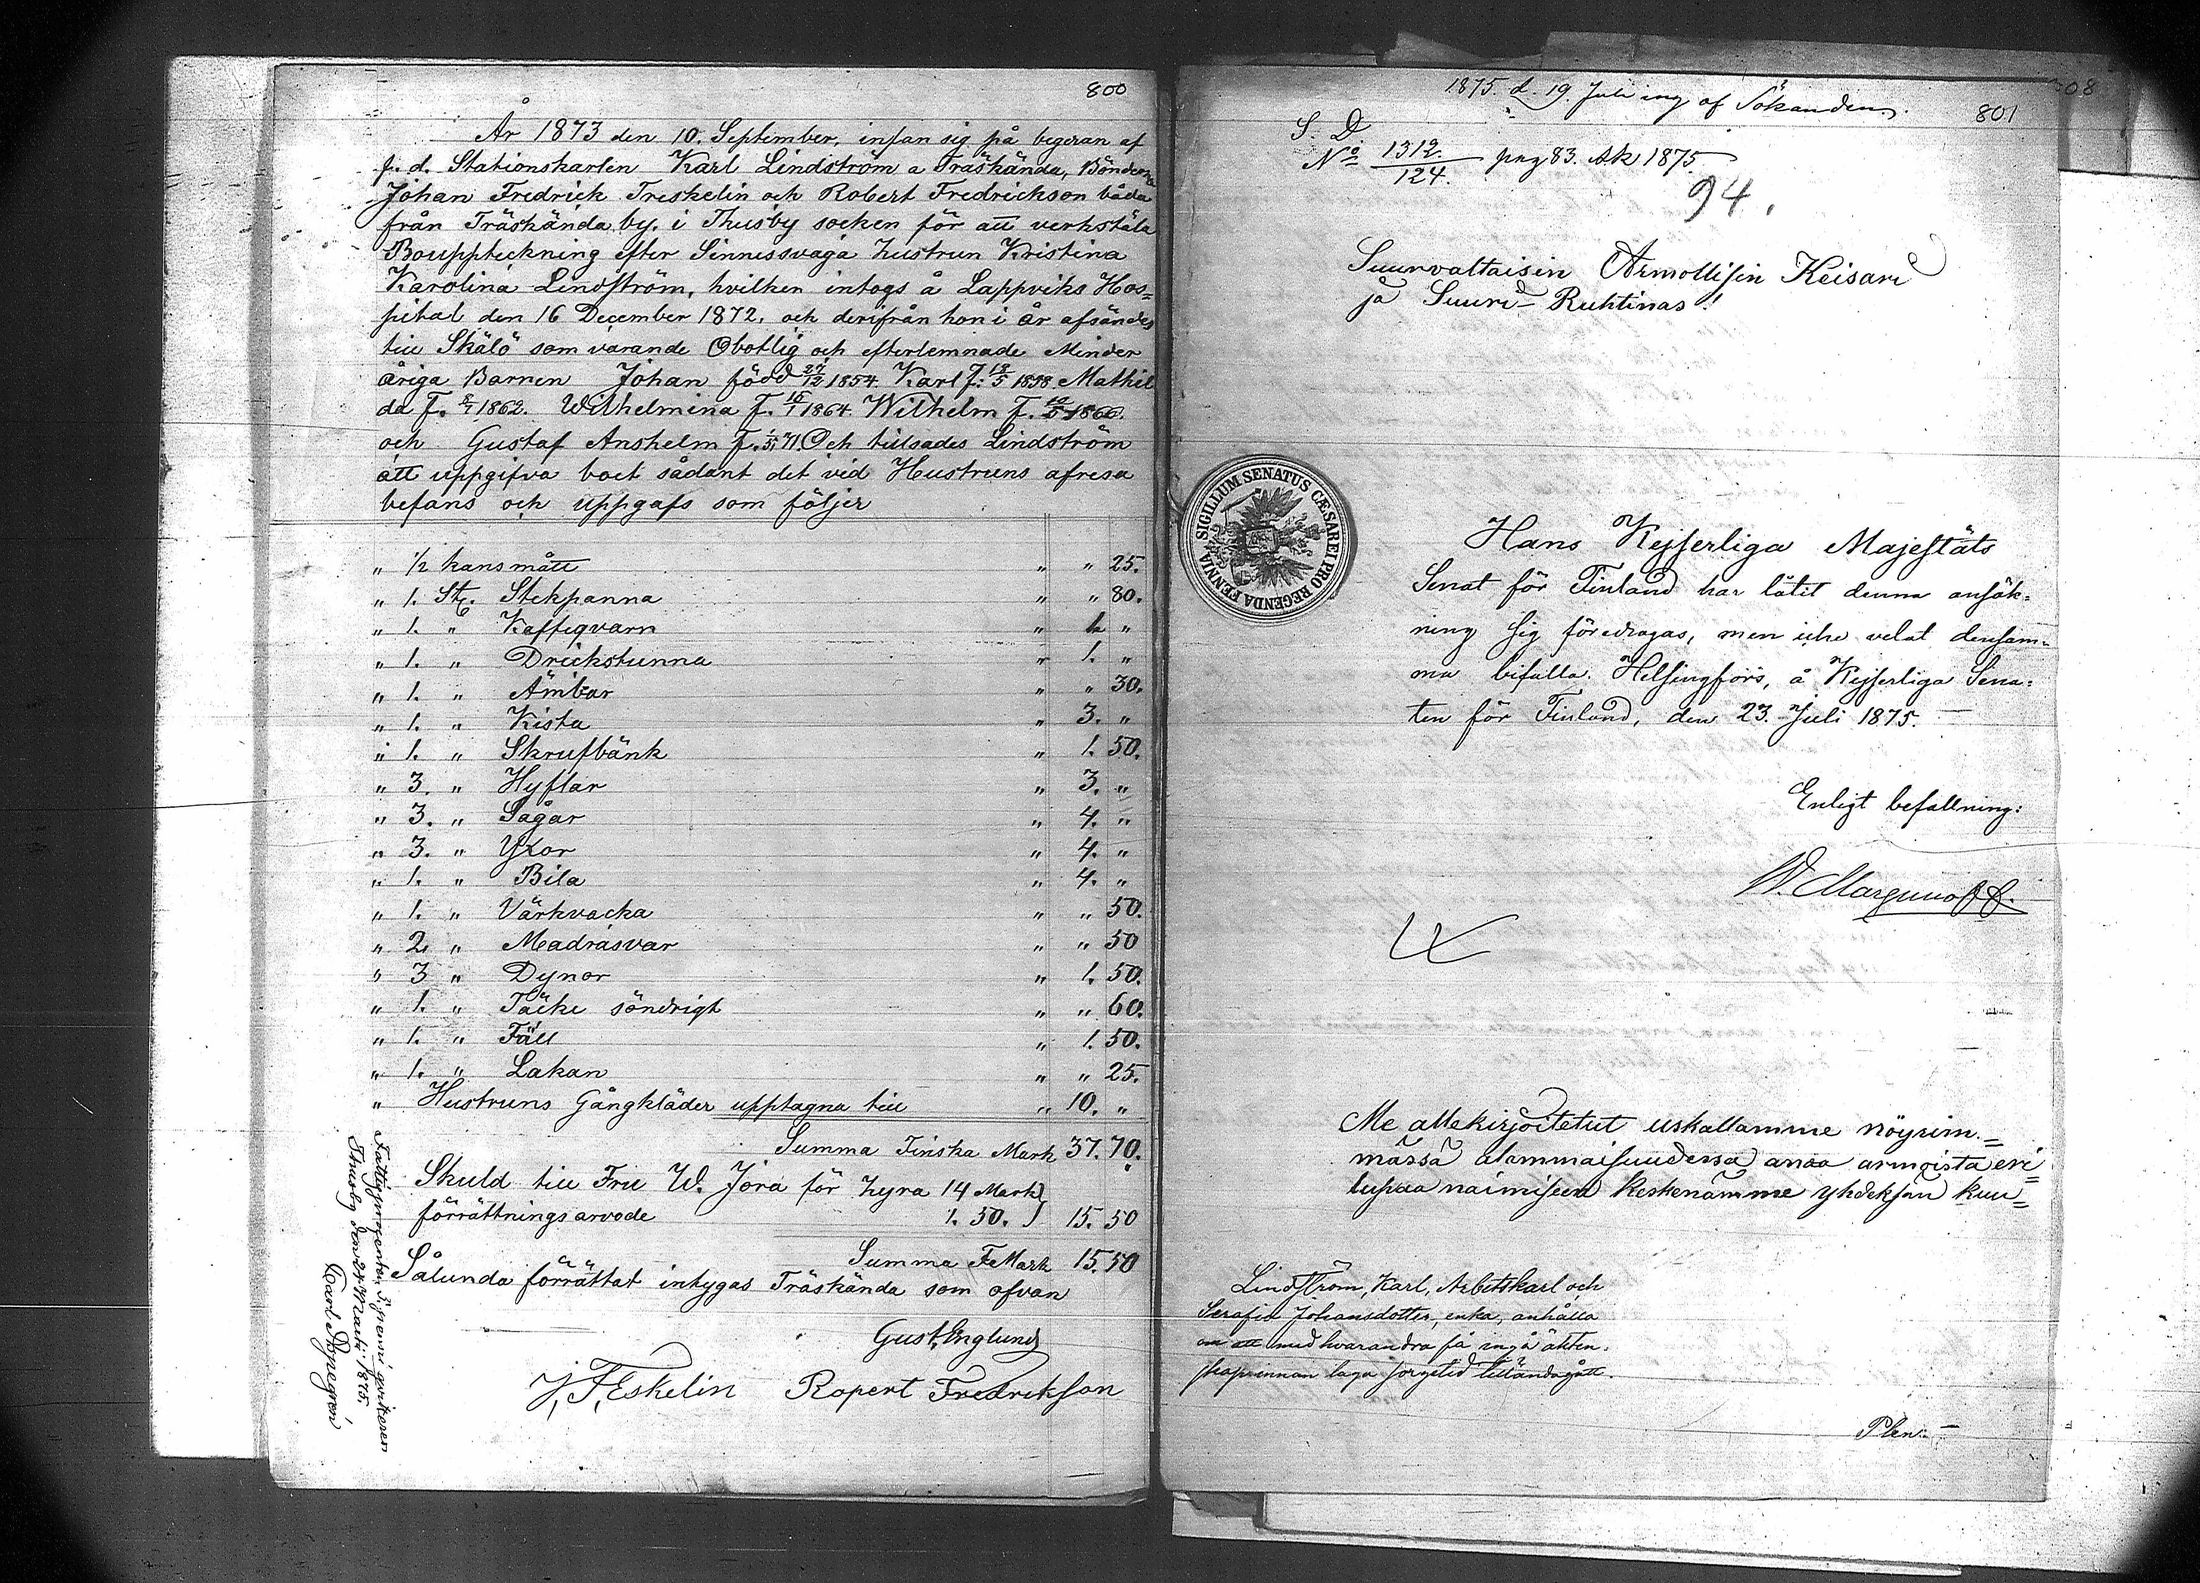 800
År 1873 den 10. September, infan sig på begeran af
f. d. Stationskarlen Karl Lindström a Träskända, Bönderna
Johan Fredrick Treskelin och Robert Fredrickson båda
från Träskända by. i Thusby socken för att verkstäla
Bouppteckning efter Sinnessvaga hustrun Kristina
Karolina Lindström, hvilken intogs å Lappviks Hos=
pital den 16 December 1872, och derifrån hon i år afsändes
till Skälö som varande Obotlig och efterlemnade Minder
åriga Barnen Johan född 27/12 1854. Karl f: 18/5 1858. Mathil
da f. 8/7 1862. Wilhelmina f. 16/1 1864. Wilhelm f. 1866.
och Gustaf Anshelm f. 71. Och tillsades Lindström
att uppgifva boet sådant det vid Hustruns afresa
befans och uppgafs som följer
„ 1/2 kans mått „ „ 25.
„ 1. St. Stekpanna „ „ 80.
„ 1. „ Kaffeqvarn „ 1. „
„ 1. „ Drickstunna „ 1. „
„ 1. „ Ämbar „ „ 30.
„ 1. „ Kista „ 3. „
„ 1. „ Skrufbänk „ 1. 50.
„ 3. „ Hyflar „ 3. „
„ 3. „ Sågar „ 4. „
„ 3. „ Yxor „ 4. „
„ 1. „ Bila „ 4. „
„ 1. „ Värkvacka „ „ 50.
„ 2. „ Madrasvar „ „ 50
„ 3 „ Dynor „ 1. 50.
„ 1. „ Täcke söndrigt „ „ 60.
„ 1. „ Fäll „ 1. 50.
„ 1. „ Lakan „ „ 25.
„ Hustruns Gångkläder upptagna till „ 10. „
Summa Finska Mark 37. 70.
Skuld till Fru W. Jóra för hyra 14 Mark
förrättnings arvode 1. 50. } 15. 50
Summa F Mark 15. 50
Sålunda förrättat intygas Träskända som ofvan
Gust. Englund
J, F, Eskelin Ropert Fredrikson
Fattigprocenten, 5 penni, qvitteras
Thusby den 24 Mars 1875.
Carl
1875. d. 19 Juli ing. af Sökanden.
808
801
S. D
No 1312./124. pag 83. Ak 1875
94.
Suurvaltaisin Armollisin Keisari
ja Suuri- Ruhtinas!
SIGILLUM SENATUS CÆSAREI PRO REGENDA FENNIA
Hans Kejserliga Majestäts
Senat för Finland har låtit denna ansök-
ning sig föredragas, men icke velat densam-
ma bifalla. Helsingfors, å Kejserliga Sena-
ten för Finland, den 23. Juli 1875.
Enligt befallning:
Me allekirjoitetut uskallamme nöyrim=
mässä alammaisuudessa anoa armoista eri
lupaa naimiseen keskenämme yhdeksän kuu=
Lindström, Karl, Arbetskarl och
Serafia Johansdotter, enka, anhålla
om att med hvarandra få ingå äkten-
skap innan laga sorgetid tilländagått.
Plen: -